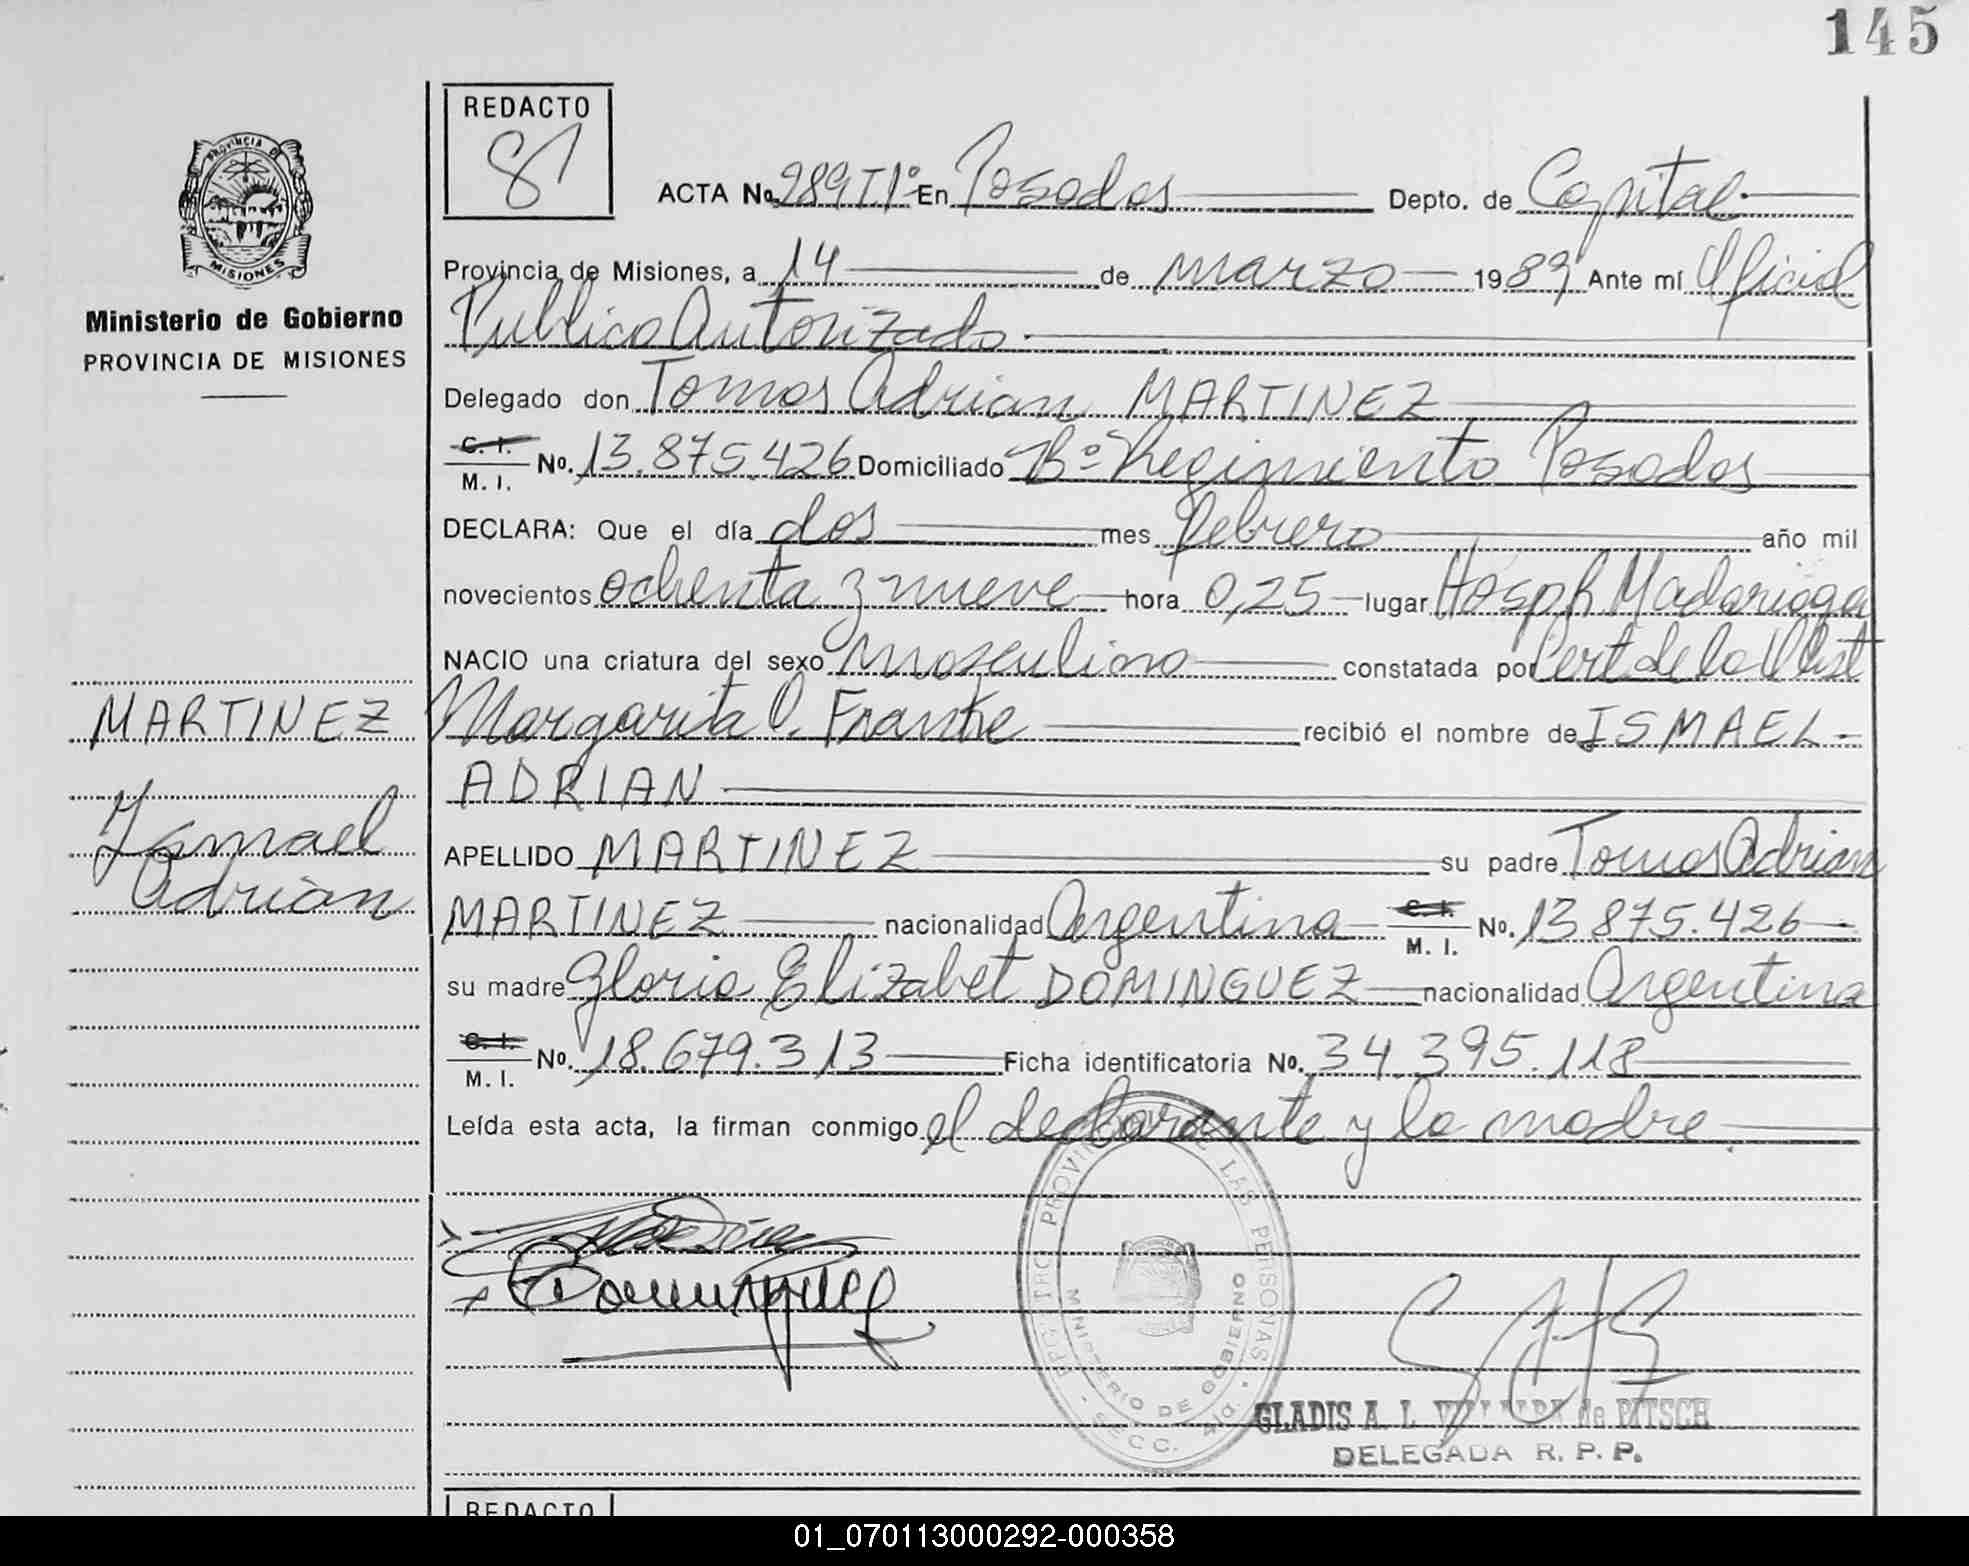 145
REDACTO
PROVINCIA DE
MISIONES
Ministerio de Gobierno
PROVINCIA DE MISIONES
ACTA No. 289 T1º En Posadas Depto. de Capital
Provincia de Misiones, a 14 de marzo 1989 Ante mí Oficial
Publico Autorizado
Delegado don Tomas Adrian MARTINEZ
C. I. M. I. No. 13.875.426 Domiciliado Bº Regimiento Posadas
DECLARA: Que el día dos mes febrero año mil
novecientos ochenta y nueve hora 0,25 lugar Hosp R Madariaga
NACIO una criatura del sexo masculino constatada por Cert de la Obst
Margarita O. Franke recibió el nombre de ISMAEL
ADRIAN
MARTINEZ
Ismael
Adrian
APELLIDO MARTINEZ su padre Tomas Adrian
MARTINEZ nacionalidad Argentina C. I. M. I. No. 13.875.426
su madre Gloria Elizabet DOMINGUEZ nacionalidad Argentina
C. I. M. I. No. 18.679.313 Ficha identificatoria No. 34.395.118
Leída esta acta, la firman conmigo el declarante y la madre.
REGISTRO PROVINCIAL DE LAS PERSONAS
MINISTERIO DE GOBIERNO
SECC. 4ta.
Dominguez
GLADIS A. L. de PITSCH
DELEGADA R. P. P.
REDACTO
01_070113000292-000358